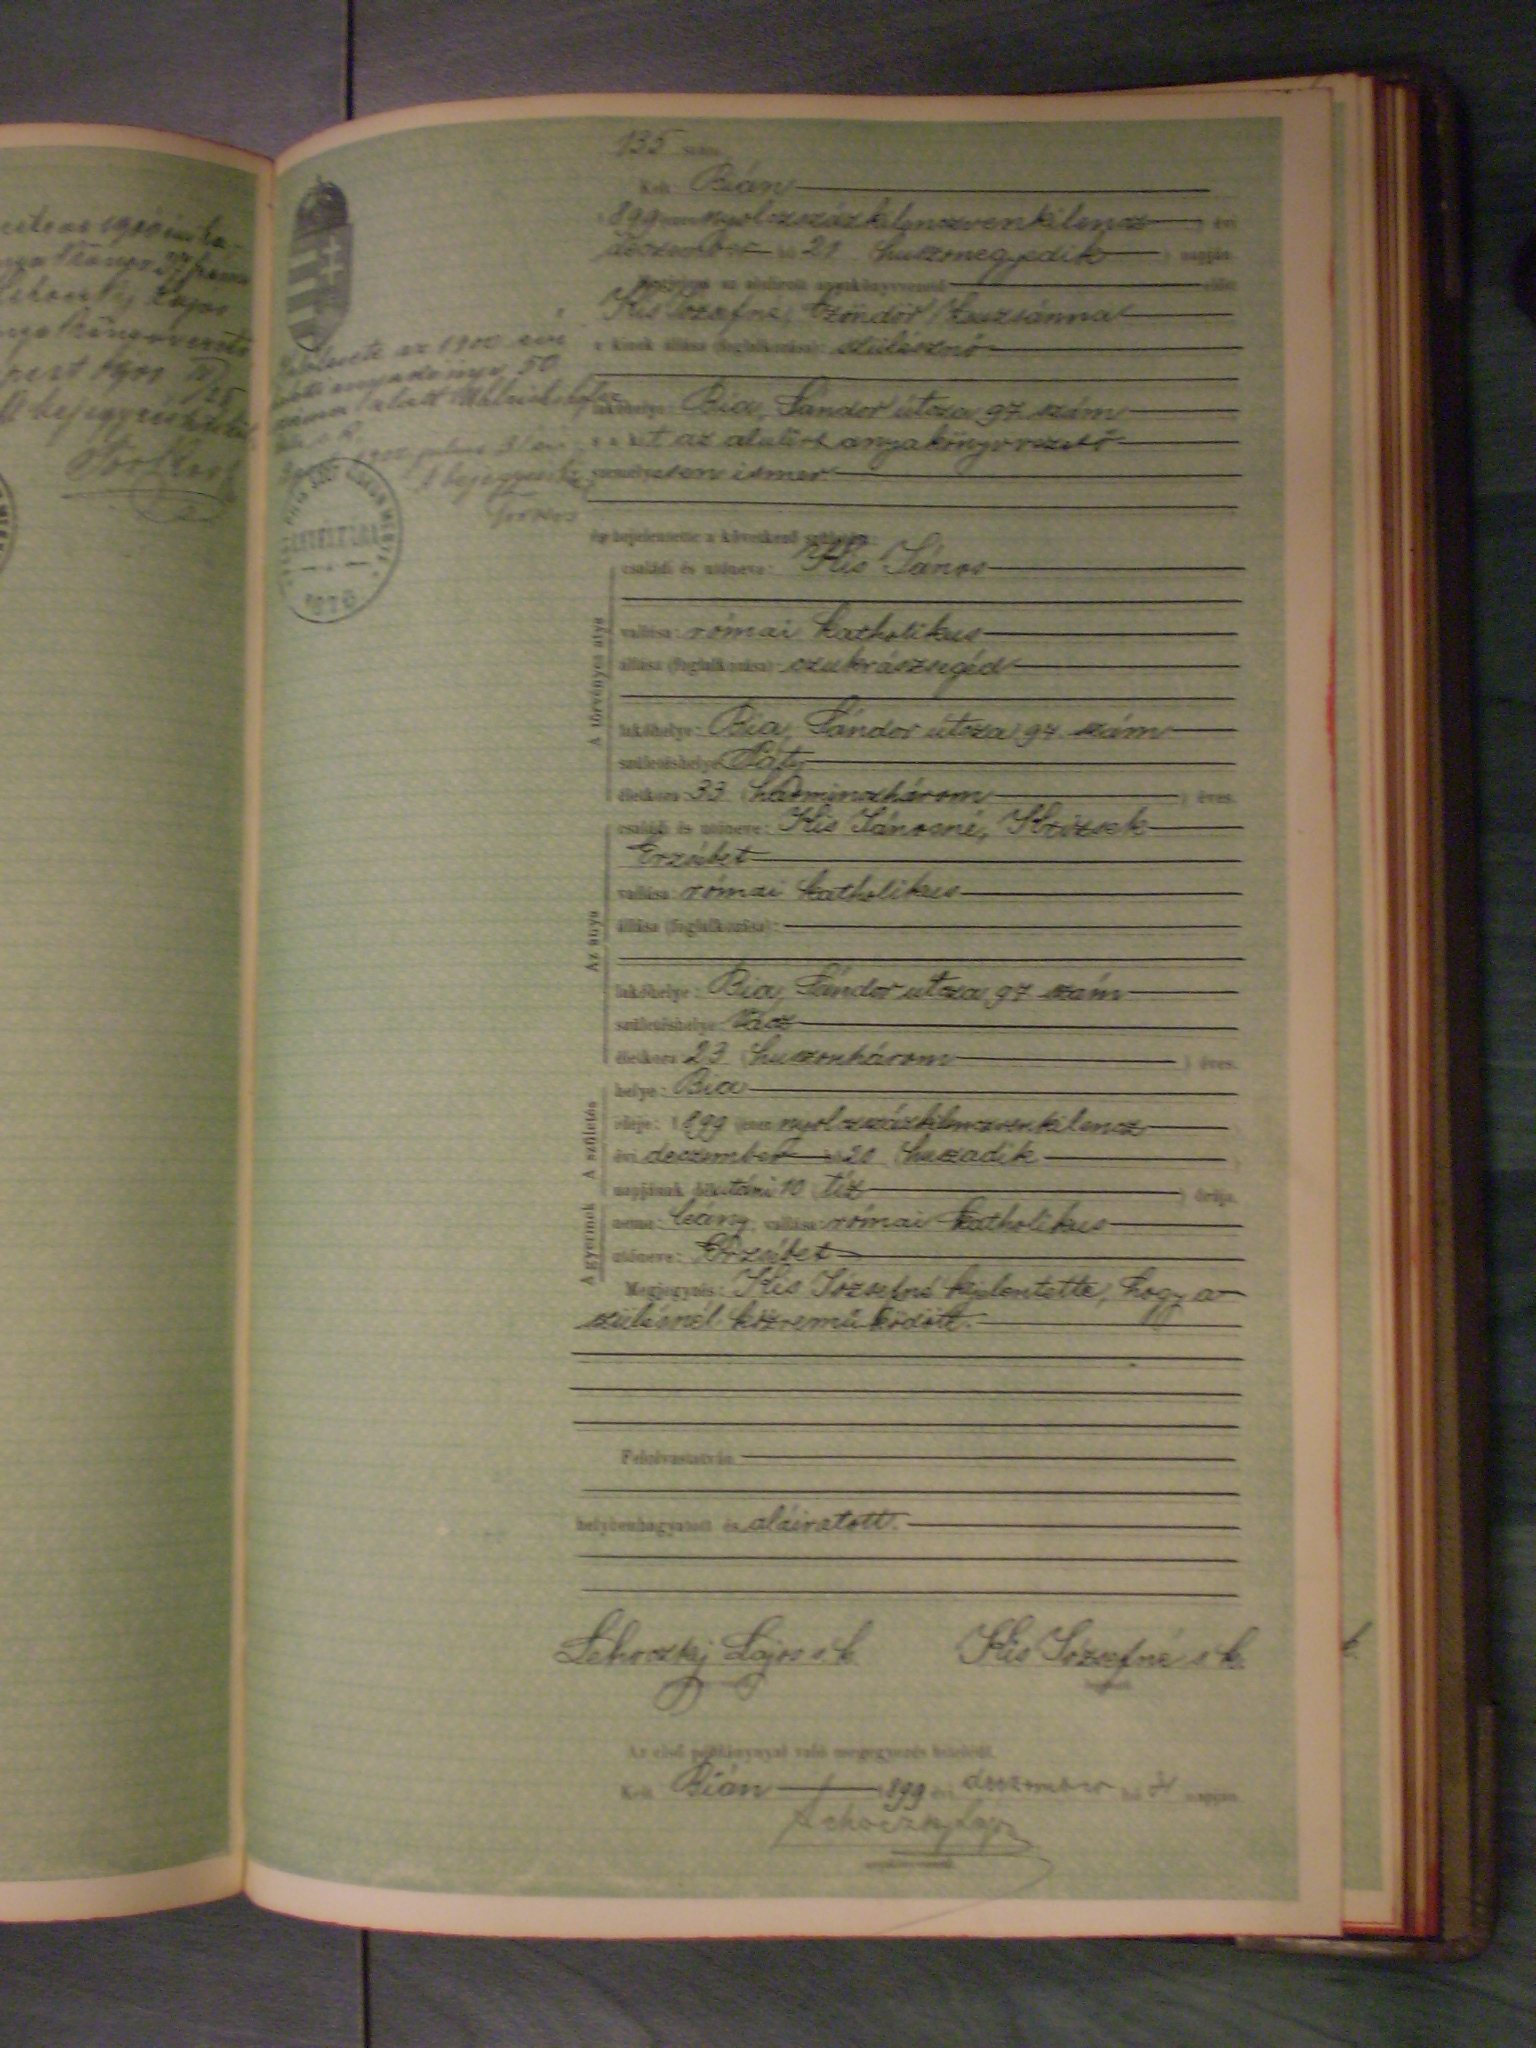 135 szám.
Kelt Bián
1899 ezer nyolczszázkilenczvenkilencz ) évi
deczember hó 21 (huszonegyedik ) napján.
Megjelent az alulirott anyakönyvvezető előtt
Kis Józsefné, Czöndör Zsuzsánna
a kinek állása (foglalkozása): szülésznő
lakóhelye: Bia, Sándor útcza 97. szám
s a kit az alulirt anyakönyvvezető
személyesen ismer
és bejelentette a következő születést:
A törvényes atya
családi és utóneve: Kis János
vallása: római katholikus
állása (foglalkozása): czukrászsegéd
lakóhelye: Bia, Sándor útcza 97. szám
születéshelye: Páty
életkora: 33 (harminczhárom ) éves.
Az anya
családi és utóneve: Kis Jánosné,
Erzsébet
vallása: római katholikus
állása (foglalkozása):
lakóhelye: Bia, Sándor utcza 97. szám
születéshelye: Vácz
életkora: 23 (huszonhárom ) éves.
A születés
helye: Bia
ideje: 1899 (ezer nyolczszázkilenczvenkilencz
évi deczember hó 20 (huszadik )
napjának délutáni 10 (tíz ) órája.
A gyermek
neme: leány, vallása: római katholikus
utóneve: Erzsébet
Megjegyzés: Kis Józsefné bejelentette, hogy a
szülésnél közreműködött.
Felolvastatván
helybenhagyatott és aláiratott.
Lehoczky Lajos s. k. Kis Józsefné s. k.
Az első példánynyal való megegyezés hiteléül.
Kelt Bián 1899 évi deczember hó 21 napján.
Lehoczky Lajos
anyakönyvvezető.
az 1900 évi
50
szám alatt
A bejegyzés
LEVÉLTÁRA